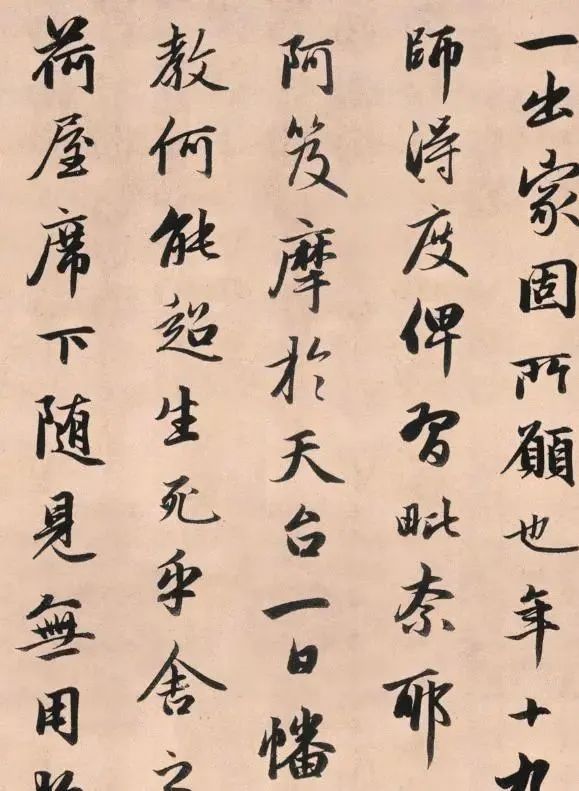 一出家固所願也年十九
師得度俾習毗奈耶
阿笈摩於天台一日幡
教何能超生死乎舍之
荷屋席下随見無用